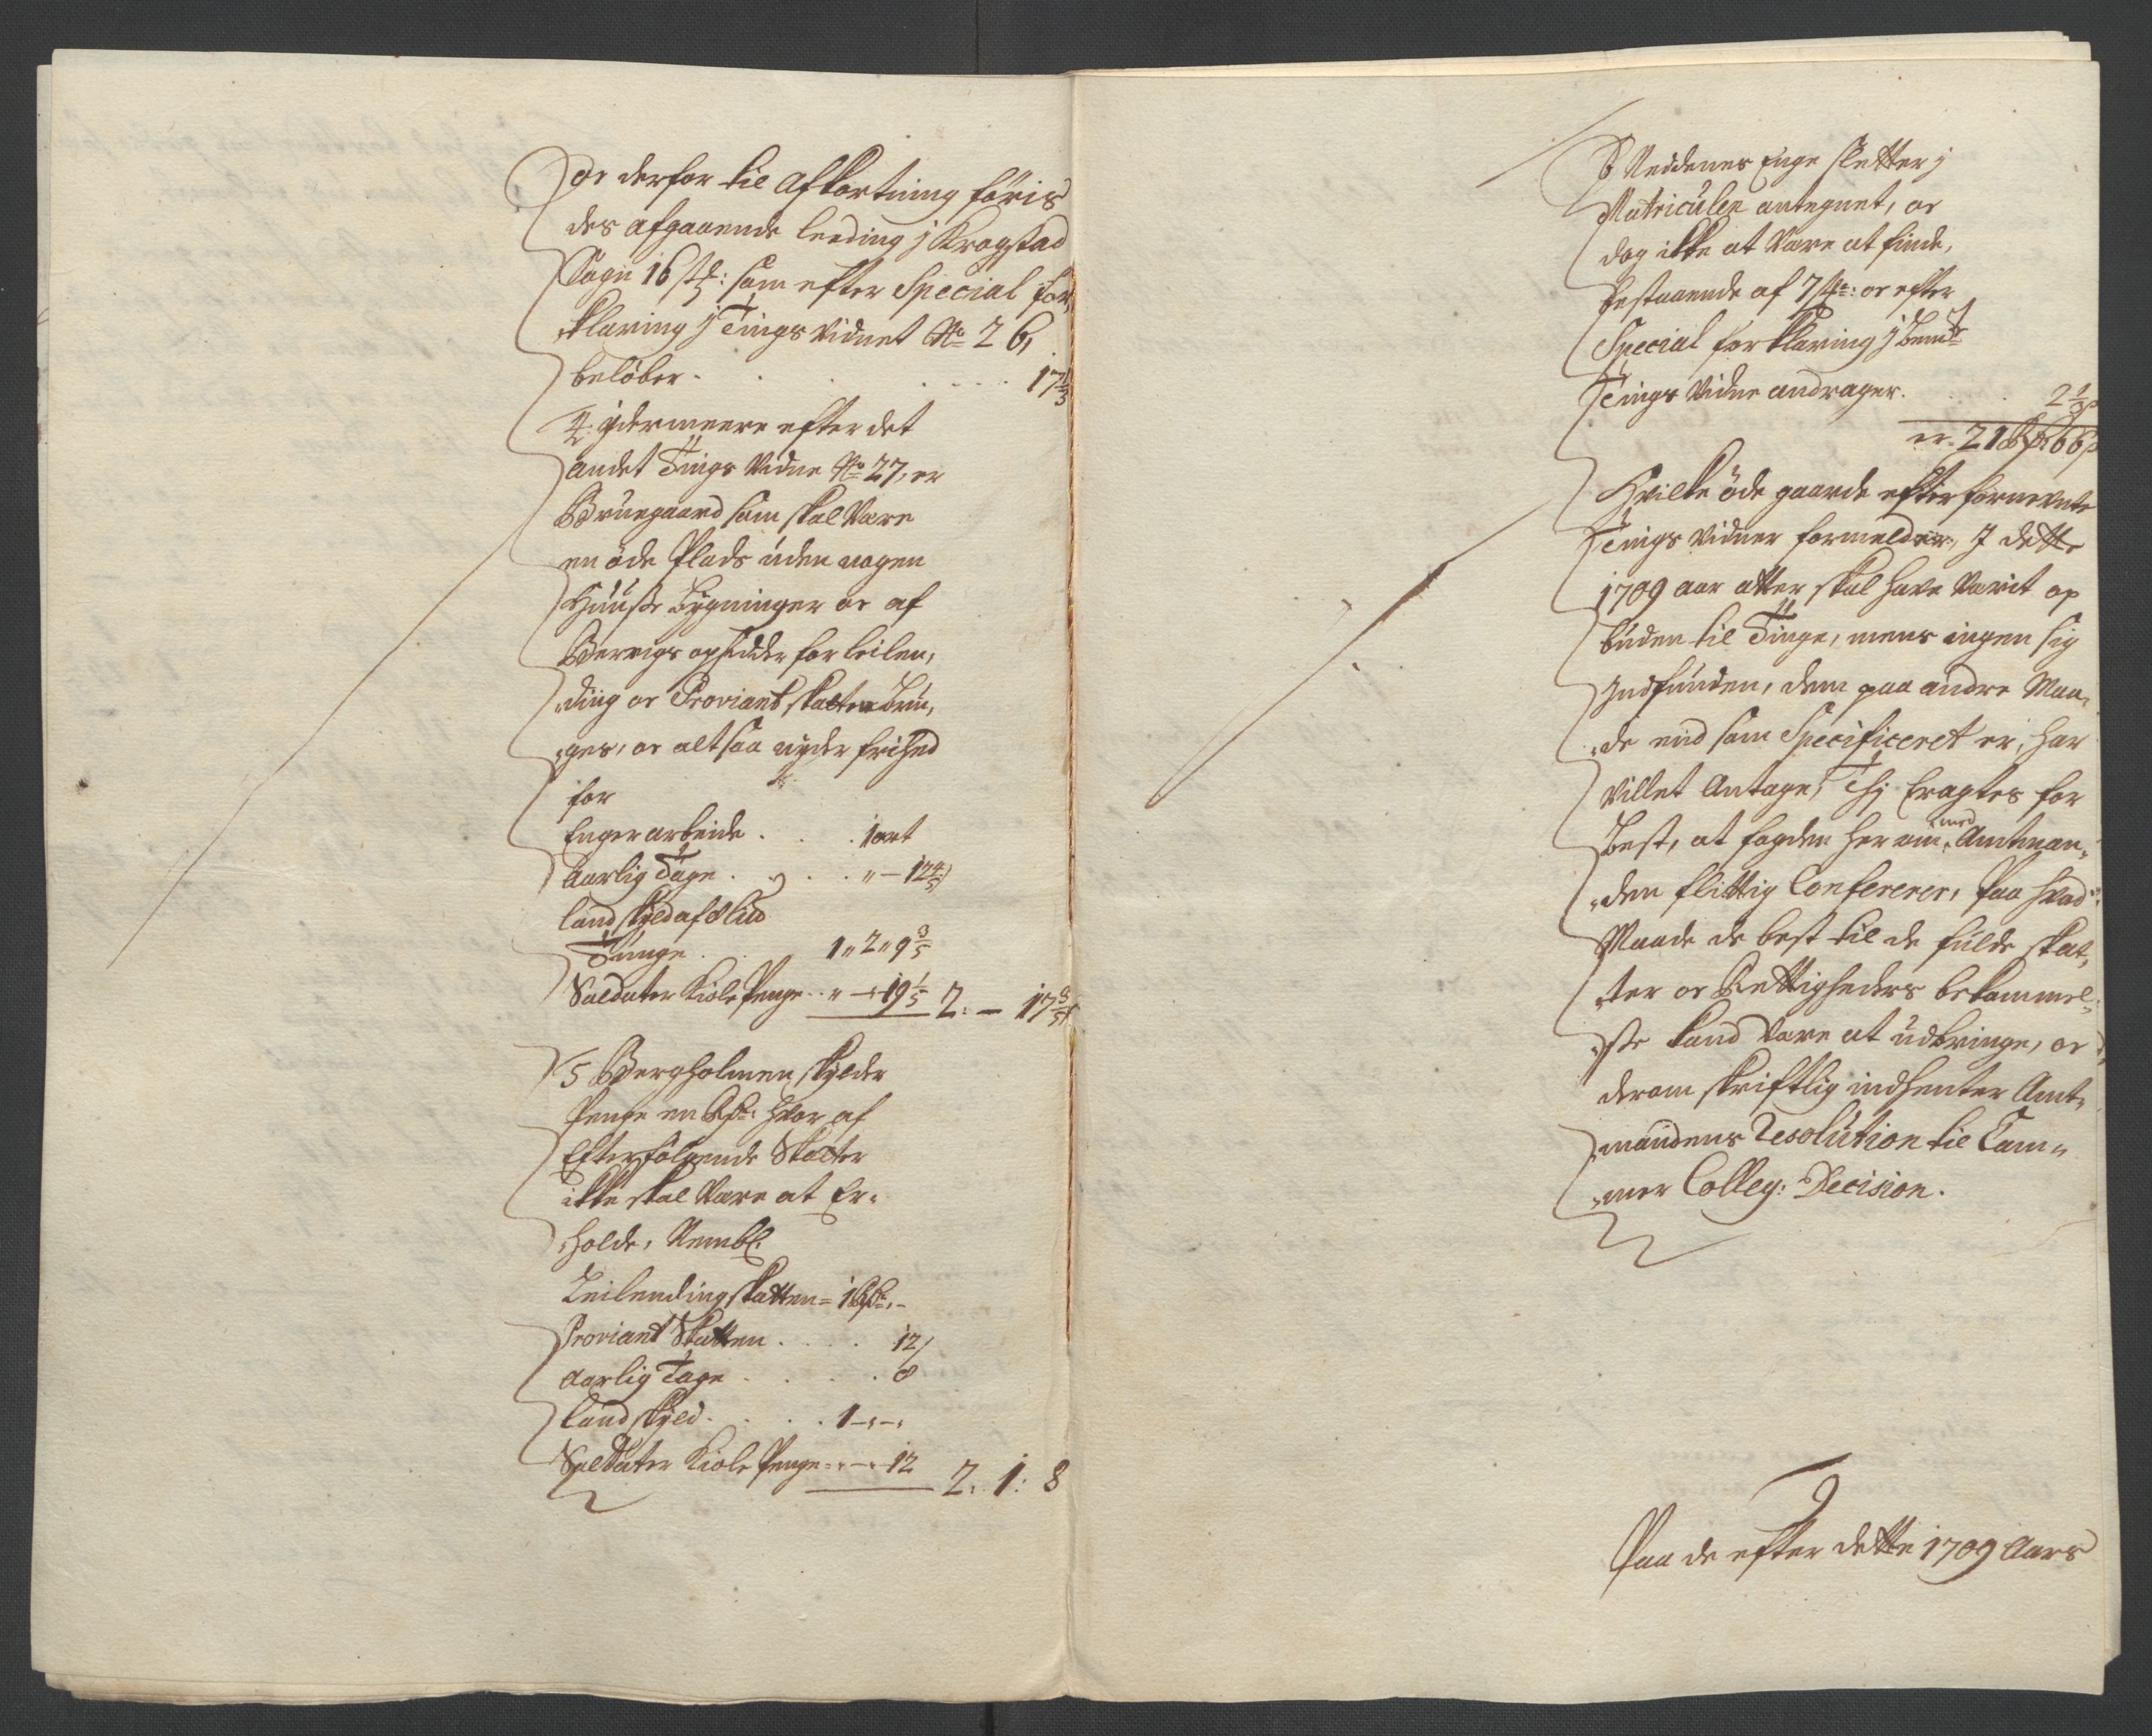 og derfor til Afkortning føris
des afgaaende leeding j Kragstad
Sogn 16 st: som efter Special for,
klaring j Tings vidnet No 26,
beløber . . . . 17 1/3
4. ydermeere efter det
andet Tings Vidne No 27, er
Bruegaard som skal være
en øde Plads uden nogen
Huuße Bygninger og af
Bervigs opsidder for leilen,
ding og Proviant skatten bru,
ges, og altsaa nyder frihed
for
Enger arbeide . . . 1 ort
Aarlig Tage . . . " — 12 4/5
landskyld af 8 lis
Tunge . . 1 " 2 " 9 3/5
Soldater Kiole Penge . . " — 19 1/5 2: — 17 3/5
5 Bergholmen skylder
Penge en Rdr: hvor af
Efterfølgende Skatter
ikke skal være at Er-
holde, Nembl.
Leilendingskatten = 1 Rdr: -
Proviant Skatten . . . . 12
Aarlig Tage . . . . . 8
land skyld . . . . 1 - , - ,
Soldater Kiole Penge - , - , 12 2: 1: 8
6 Neddenes Enge sletter j
Matriculen antegnet, og
dog ikke at være at finde,
bestaaende af 7 st: og efter
Special forklaring j bemte
Tings Vidne andrager . . . 2 1/3
er. 21 Rdr 66
Hvilke øde gaarde efter fornevnte
Tings Vidner formelder, J dette
1709 aar atter skal have værit op
buden til Tinge, mens ingen sig
Indfunden, dem paa andre Maa,
de end som Specificeret er, har
villet Antage, Thj Eragtes for
best, at fogden her om med Amtman,
den flittig Confererer, paa hvad
Maade de best til de fulde skat,
ter og Rettigheders bekommel,
se kand være at udbringe, og
derom skriftlig indhenter Amt,
mandens Resolution til Cam,
mer Colleg: Decision.
Paa de efter dette 1709 Aars